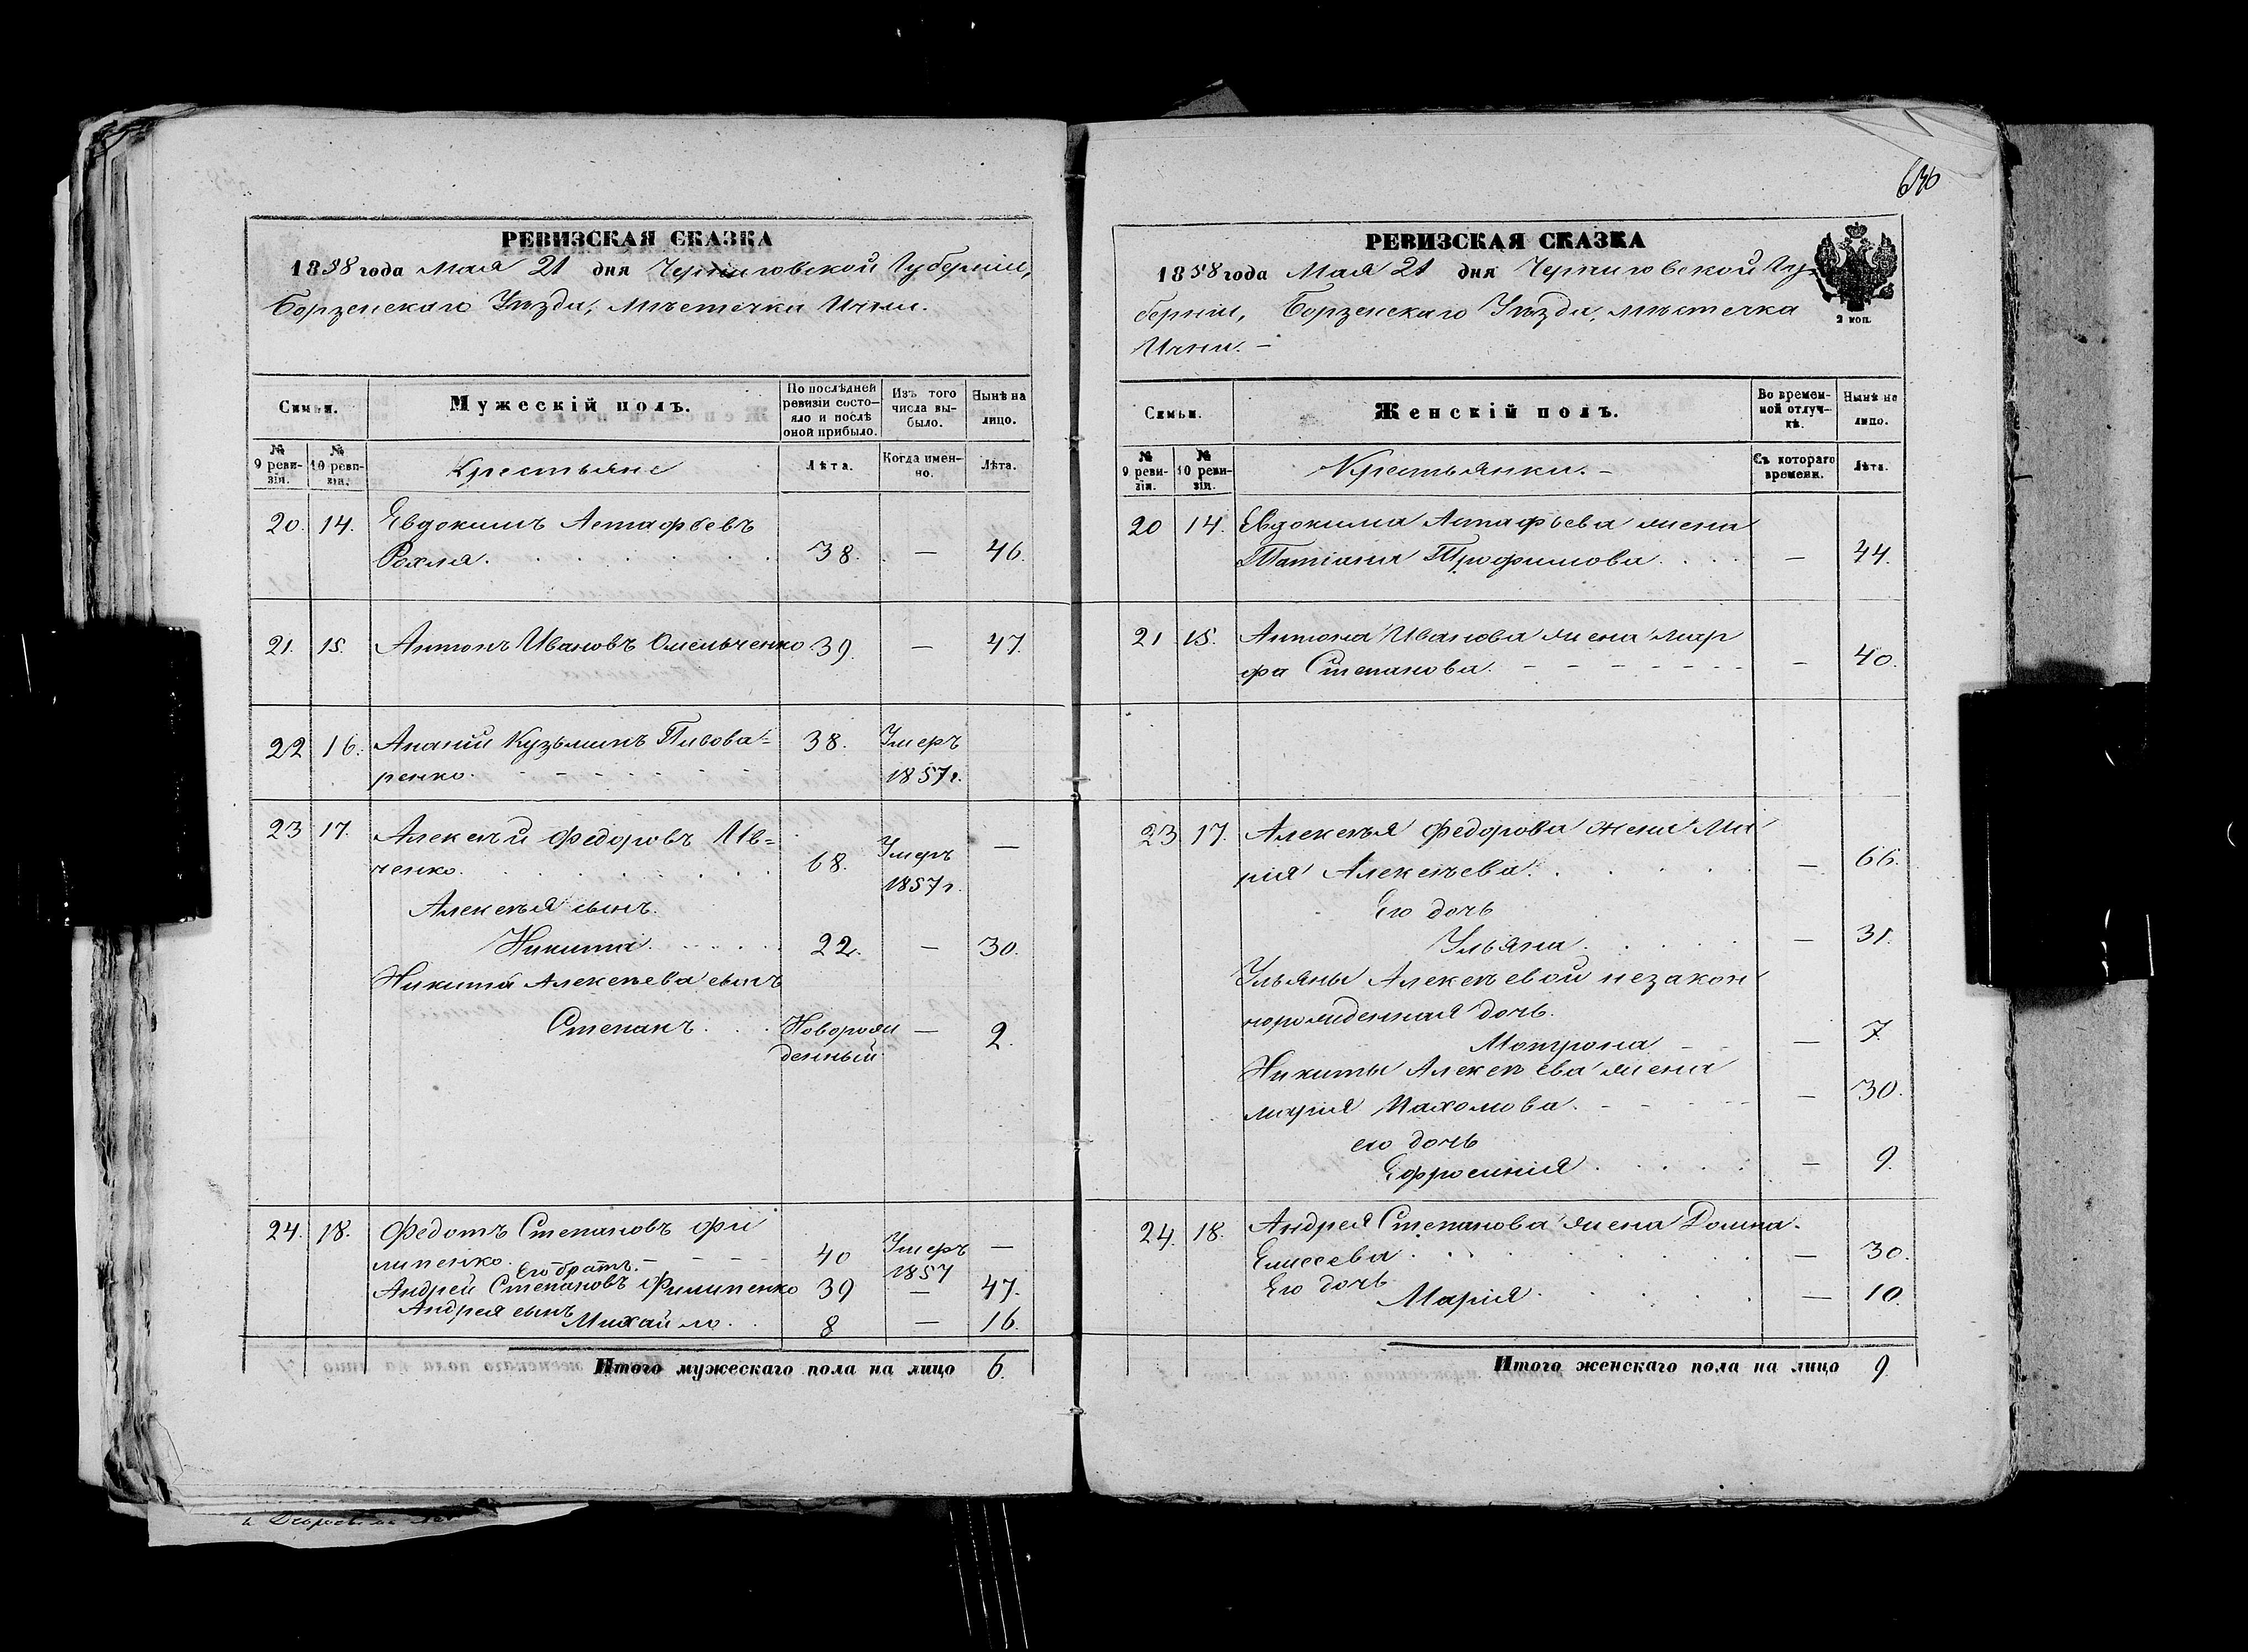 630
РЕВИЗСКАЯ СКАЗКА
1858 года Мая 21 дня Черниговской Губерніи,
Борзенскаго Уѣзда, Мѣстечка Ични.
Семьи.
Мужескій полъ.
По послѣдней ревизіи состо-яло и послѣ оной прибыло.
Изъ того числа вы-было.
Нынѣ на лицо.
№ 9 реви-зіи.
№ 10 реви-зіи.
Крестьяне
Лѣта.
Когда имен-но.
Лѣта.
20. 14. Евдокимъ Астафьевъ
Рохля. 38. — 46.
21. 15. Антонъ Ивановъ Омельченко 39. — 47.
22 16. Ананій Кузьминъ Пивова= 38. Умеръ
ренко. 1857 г.
23 17. Алексѣй Федоровъ Ив=
ченко. 68. Умеръ 1857 г. —
Алексѣя сынъ.
Никита. 22. — 30.
Никита Алексѣева сынъ
Степанъ. Новорож — 2.
денный
24. 18. Федотъ Степановъ Фи
липенко. 40 Умеръ 1857 —
Его братъ.
Андрей Степановъ Филипенко 39 — 47.
Андрея сынъ
Михайло. 8 — 16.
Итого мужескаго пола на лицо 6.
РЕВИЗСКАЯ СКАЗКА
1858 года Мая 21 дня Черниговской Гу
берніи, Борзенскаго Уѣзда, мѣстечка
Ични. —
2 коп.
Семьи.
Женскій полъ.
Во времен-ной отлуч-кѣ.
Нынѣ на лицо.
№ 9 реви-зіи.
№ 10 реви-зіи.
Крестьянки. —
Съ котораго времени.
Лѣта.
20 14. Евдокима Астафьева жена
Татіана Трофимова. — 44.
21 15. Антона Иванова жена Мар
фа Степанова. — 40.
23 17. Алексѣя Федорова жена Ма
рія Алексѣева. — 66.
Его дочь
Ульяна. — 31.
Ульяны Алексѣевой незакон
норожденная дочь.
Мотрона — 7
Никиты Алексѣева жена
Марія Пахомова. — 30.
его дочь
Ефросинія. — 9.
24. 18. Андрея Степанова жена Домна.
Елисеева. — 30.
Его дочь
Марія. — 10.
Итого женскаго пола на лицо 9.